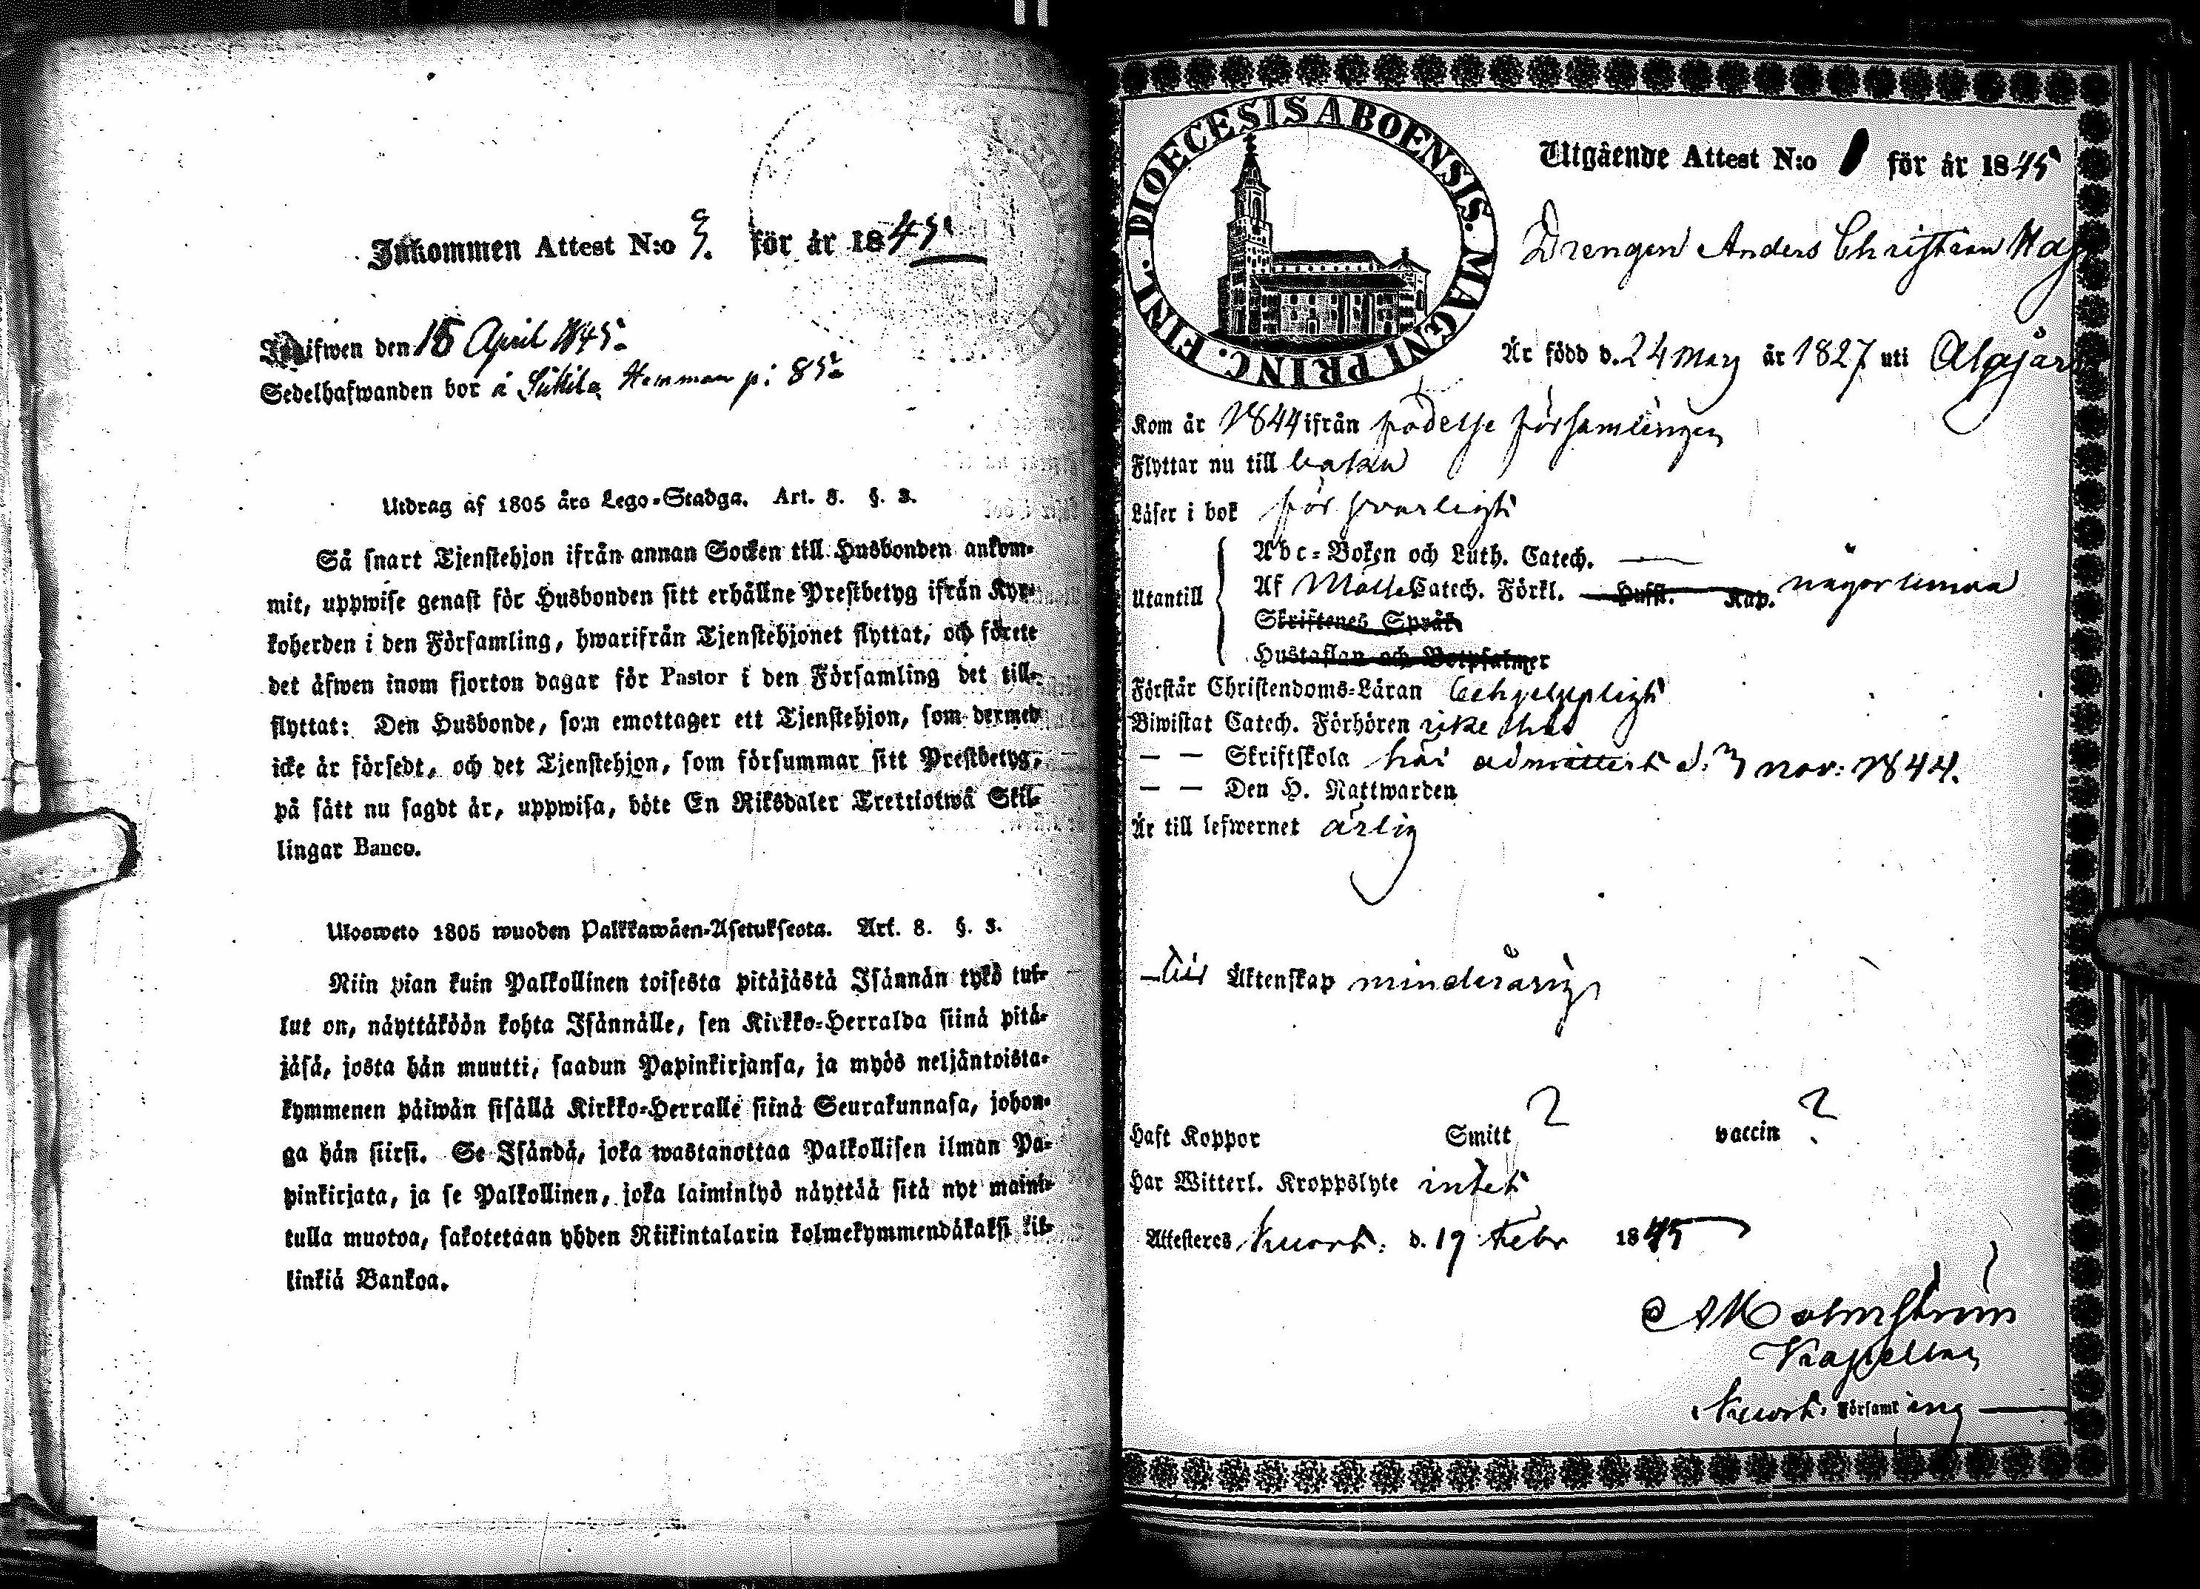 Inkommen Attest N:o 9. för år 1845.
Inskrifwen den 15 April 1845.
Sedelhafwanden bor å Hemman p: 85
Utdrag af 1805 års Lego-Stadga. Art. 8. §. 3.
Så snart Tjenstehjon ifrån annan Socken till Husbonden ankom-
mit, uppwise genast för Husbonden sitt erhållne Prestbetyg ifrån Kyr-
koherden i den Församling, hwarifrån Tjenstehjonet flyttat, och förete
det äfwen inom fjorton dagar för Pastor i den Församling det till-
flyttat: Den Husbonde, som emottager ett Tjenstehjon, som dermed
icke är försedt, och det Tjenstehjon, som försummar sitt Prestbetyg,
på sätt nu sagdt är, uppwisa, böte En Riksdaler Trettiotwå Skil-
lingar Banco.
Ulosweto 1805 wuoden Palkkawäen-Asetuksesta. Art. 8. §. 3.
Niin pian kuin Palkollinen toisesta pitäjästä Isännän tykö tul-
lut on, näyttäköön kohta Isännälle, sen Kirkko-Herralda siinä pitä-
jäsä, josta hän muutti, saadun Papinkirjansa, ja myös neljäntoista-
kymmenen päiwän sisällä Kirkko-Herralle siinä Seurakunnasa, johon-
ga hän siirsi. Se Isändä, joka wastanottaa Palkollisen ilman Pa-
pinkirjata, ja se Palkollinen, joka laiminlyö näyttää sitä nyt maini-
tulla muotoa, sakotetaan yhden Riikintalarin kolmekymmendäkaksi kil-
linkiä Bankoa.
DIOECESIS ABOENSIS. MAGNI PRINC. FINL.
Utgående Attest N:o 1 för år 1845
Drengen Anders Christian
Är född d. 24 May år 1827 uti
Kom år 1844 ifrån födelse församlingen
Flyttar nu till
Läser i bok försvarligt
Utantill
Abc-Boken och Luth. Catech. —
Af Catech. Förkl. Hufst. Kap. någorlunda
Skriftenes Språk
Hustaflan och Botpsalmer
Förstår Christendoms-Läran behjelpligt
Biwistat Catech. Förhören icke här
— — Skriftskola här admittert d. 3 nov: 1844.
— — Den H. Nattwarden
Är till lefwernet ärlig
till Äktenskap minderårig
Haft Koppor Smitt ? vaccin ?
Har Witterl. Kroppslyte intet
Attesteras d. 19 Febr 1845
Kapellan
Församling